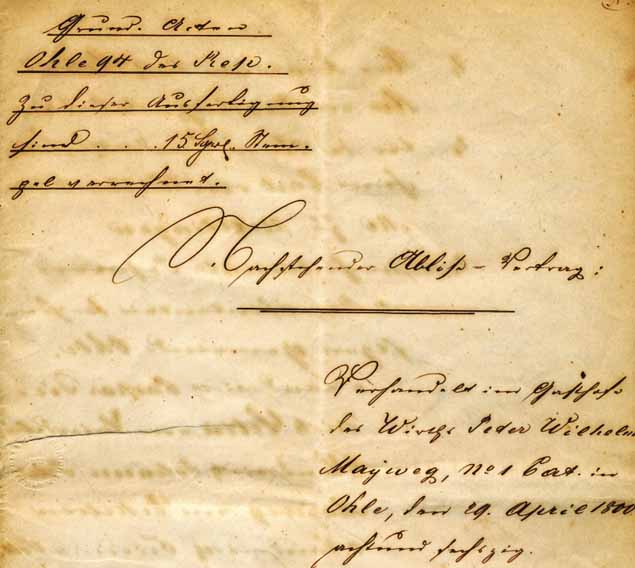 Grund. Acten
Ohle 94 des Rep.
Zu dieser Ausfertigung
sind . . . 15 Sgr. Stem-
pel verrechnet.
Nachstehender Ablöse-Vertrag:
Verhandelt im Gasthof
des Wirths Peter Wilhelm
Mayweg, No 1 Cat. in
Ohle, den 29. April 1800
achtund sechszig.